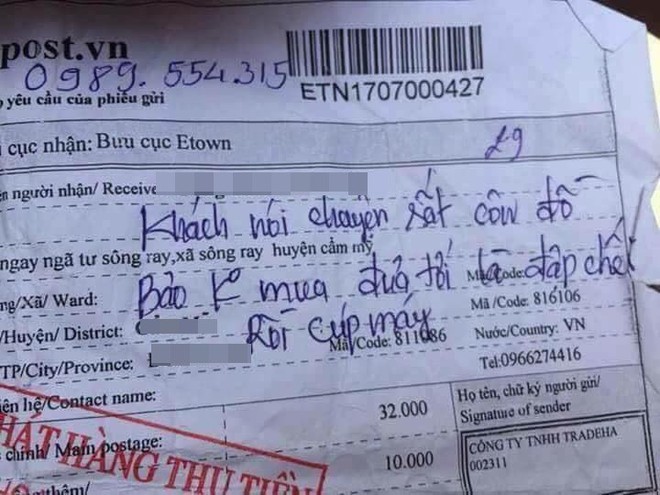 post.vn
0989.554.315
yêu cầu của phiếu gửi
ETN1707000427
cục nhận: Bưu cục Etown
29
ên người nhận/ Receive
Khách nói chuyện rất côn đồ
ngay ngã tư sông ray,xã sông ray huyện cẩm mỹ
ng/Xã/ Ward:
Mã/Code:
Bảo k mua đưa tới là đập chết
Mã /Code: 816106
/Huyện/ District:
Rồi cúp máy
Mã/Code: 811086
Nước/Country: VN
TP/City/Province:
Tel:0966274416
iên hệ/Contact name:
32.000
Họ tên, chữ ký người gửi/
Signature of sender
PHÁT HÀNG THU TIỀN
chính/ Main postage:
10.000
CÔNG TY TNHH TRADEHA
002311
thêm/